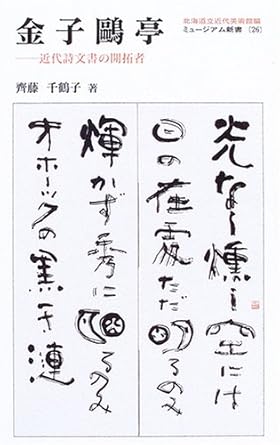 金子鷗亭
——近代詩文書の開拓者
齊藤 千鶴子 著
北海道立近代美術館編
ミュージアム新書 [26]
光なく燻し空には
日の在處ただ明るのみ
輝かず秀に明るのみ
オホーツクの黒き漣